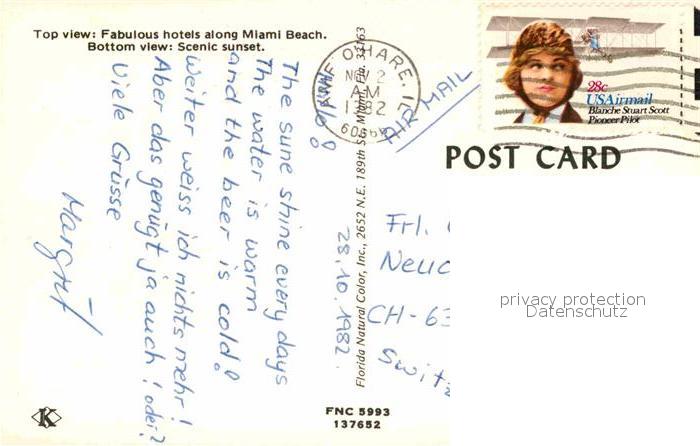 Top view: Fabulous hotels along Miami Beach.
Bottom view: Scenic sunset.
28.10.1982.
Hallo!
The sune shine every days
The water is warm
and the beer is cold!
Weiter weiss ich nichts mehr!
Aber das genügt ja auch! oder?
Viele Grüsse
Margrit
Florida Natural Color, Inc., 2652 N.E. 189th St., Miami, Fla. 33163
K
FNC 5993
137652
AMF O'HARE, IL
NOV 2
AM
1982
AIR MAIL
28c
USAirmail
Blanche Stuart Scott
Pioneer Pilot
POST CARD
Frl.
Neuc
CH-63
Switz
privacy protection
Datenschutz